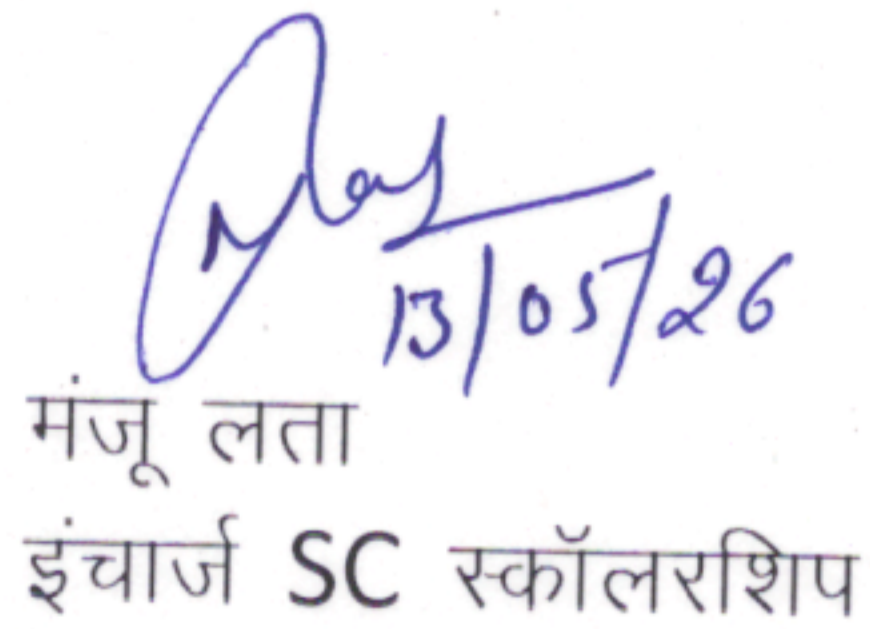 13/05/26
मंजू लता
इंचार्ज SC स्कॉलरशिप